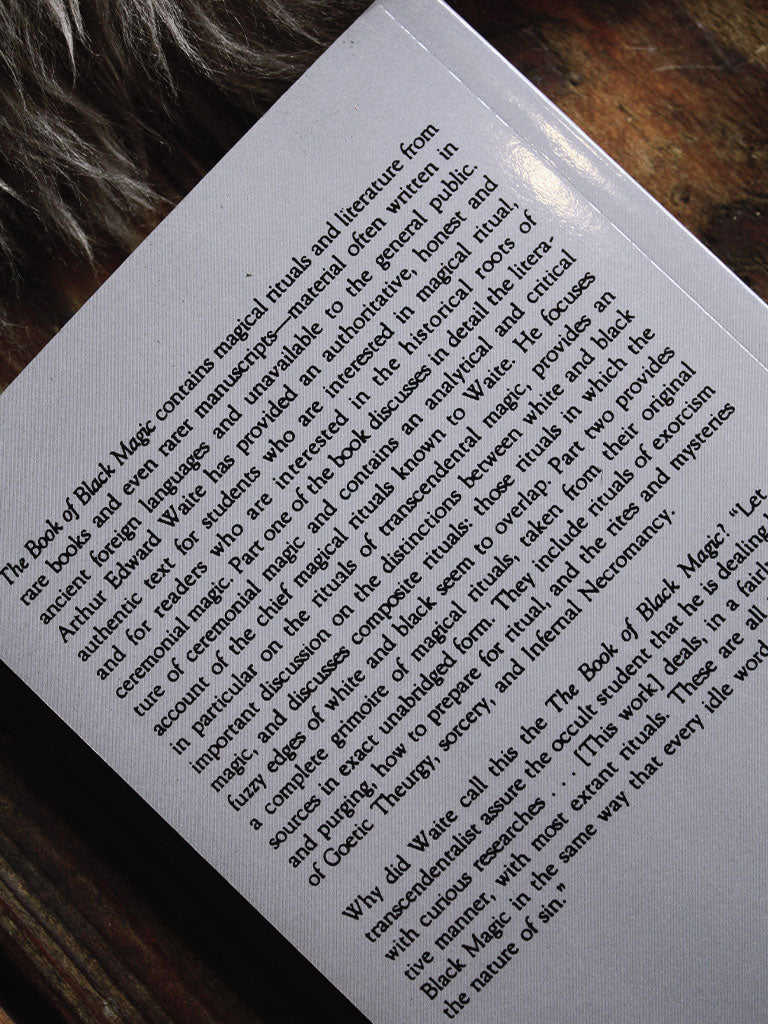 The Book of Black Magic contains magical rituals and literature from
rare books and even rarer manuscripts—material often written in
ancient foreign languages and unavailable to the general public.
Arthur Edward Waite has provided an authoritative, honest and
authentic text for students who are interested in magical ritual,
and for readers who are interested in the historical roots of
ceremonial magic. Part one of the book discusses in detail the litera-
ture of ceremonial magic and contains an analytical and critical
account of the chief magical rituals known to Waite. He focuses
in particular on the rituals of transcendental magic, provides an
important discussion on the distinctions between white and black
magic, and discusses composite rituals: those rituals in which the
fuzzy edges of white and black seem to overlap. Part two provides
a complete grimoire of magical rituals, taken from their original
sources in exact unabridged form. They include rituals of exorcism
and purging, how to prepare for ritual, and the rites and mysteries
of Goetic Theurgy, sorcery, and Infernal Necromancy.
Why did Waite call this the The Book of Black Magic? “Let
transcendentalist assure the occult student that he is dealing
with curious researches . . . [This work] deals, in a fairly
tive manner, with most extant rituals. These are all
Black Magic in the same way that every idle word
the nature of sin.”